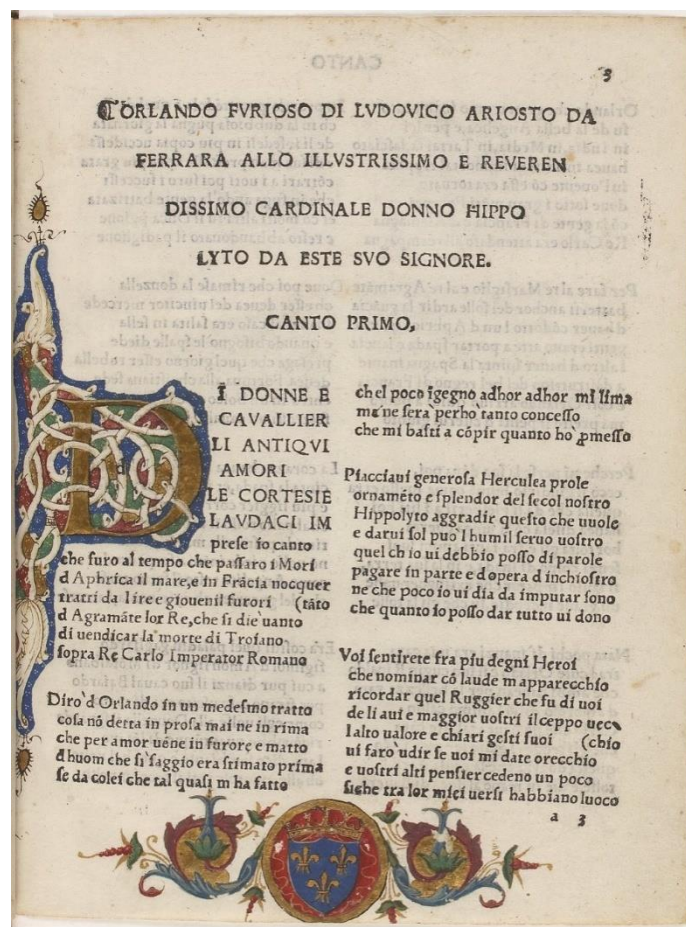 3
ORLANDO FVRIOSO DI LVDOVICO ARIOSTO DA
FERRARA ALLO ILLVSTRISSIMO E REVEREN
DISSIMO CARDINALE DONNO HIPPO
LYTO DA ESTE SVO SIGNORE.
CANTO PRIMO,
DI DONNE E
CAVALLIER
LI ANTIQVI
AMORI
LE CORTESIE
LAVDACI IM
prese io canto
che furo al tempo che paſſaro i Mori
d Aphrica il mare,e in Frãcia nocquer
tratti da l ire e giouenil furori (tãto
d Agramãte lor Re,che ſi diè uanto
di uendicar la morte di Troiano
ſopra Re Carlo Imperator Romano
Dirò d Orlando in un medeſmo tratto
coſa nõ detta in proſa mai ne in rima
che per amor uẽne in furore e matto
d huom che ſì ſaggio era ſtimato prima
ſe da colei che tal quaſi m ha fatto
che l poco ĩgegno adhor adhor mi lima
me ne ſera perhò tanto conceſſo
che mi baſti a cõpir quanto ho ꝓmeſſo
Piacciaui generoſa Herculea prole
ornamẽto e ſplendor del ſecol noſtro
Hippolyto aggradir queſto che uuole
e darui ſol può l humil ſeruo uoſtro
quel ch io ui debbio poſſo di parole
pagare in parte e d opera d inchioſtro
ne che poco io ui dia da imputar ſono
che quanto io poſſo dar tutto ui dono
Voi ſentirete fra piu degni Heroi
che nominar cõ laude m apparecchio
ricordar quel Ruggier che fu di uoi
de li aui e maggior uoſtri il ceppo uec
l alto ualore e chiari geſti ſuoi (chio
ui farò udir ſe uoi mi date orecchio
e uoſtri alti penſier cedeno un poco
ſi che tra lor miei uerſi habbiano luoco
a 3